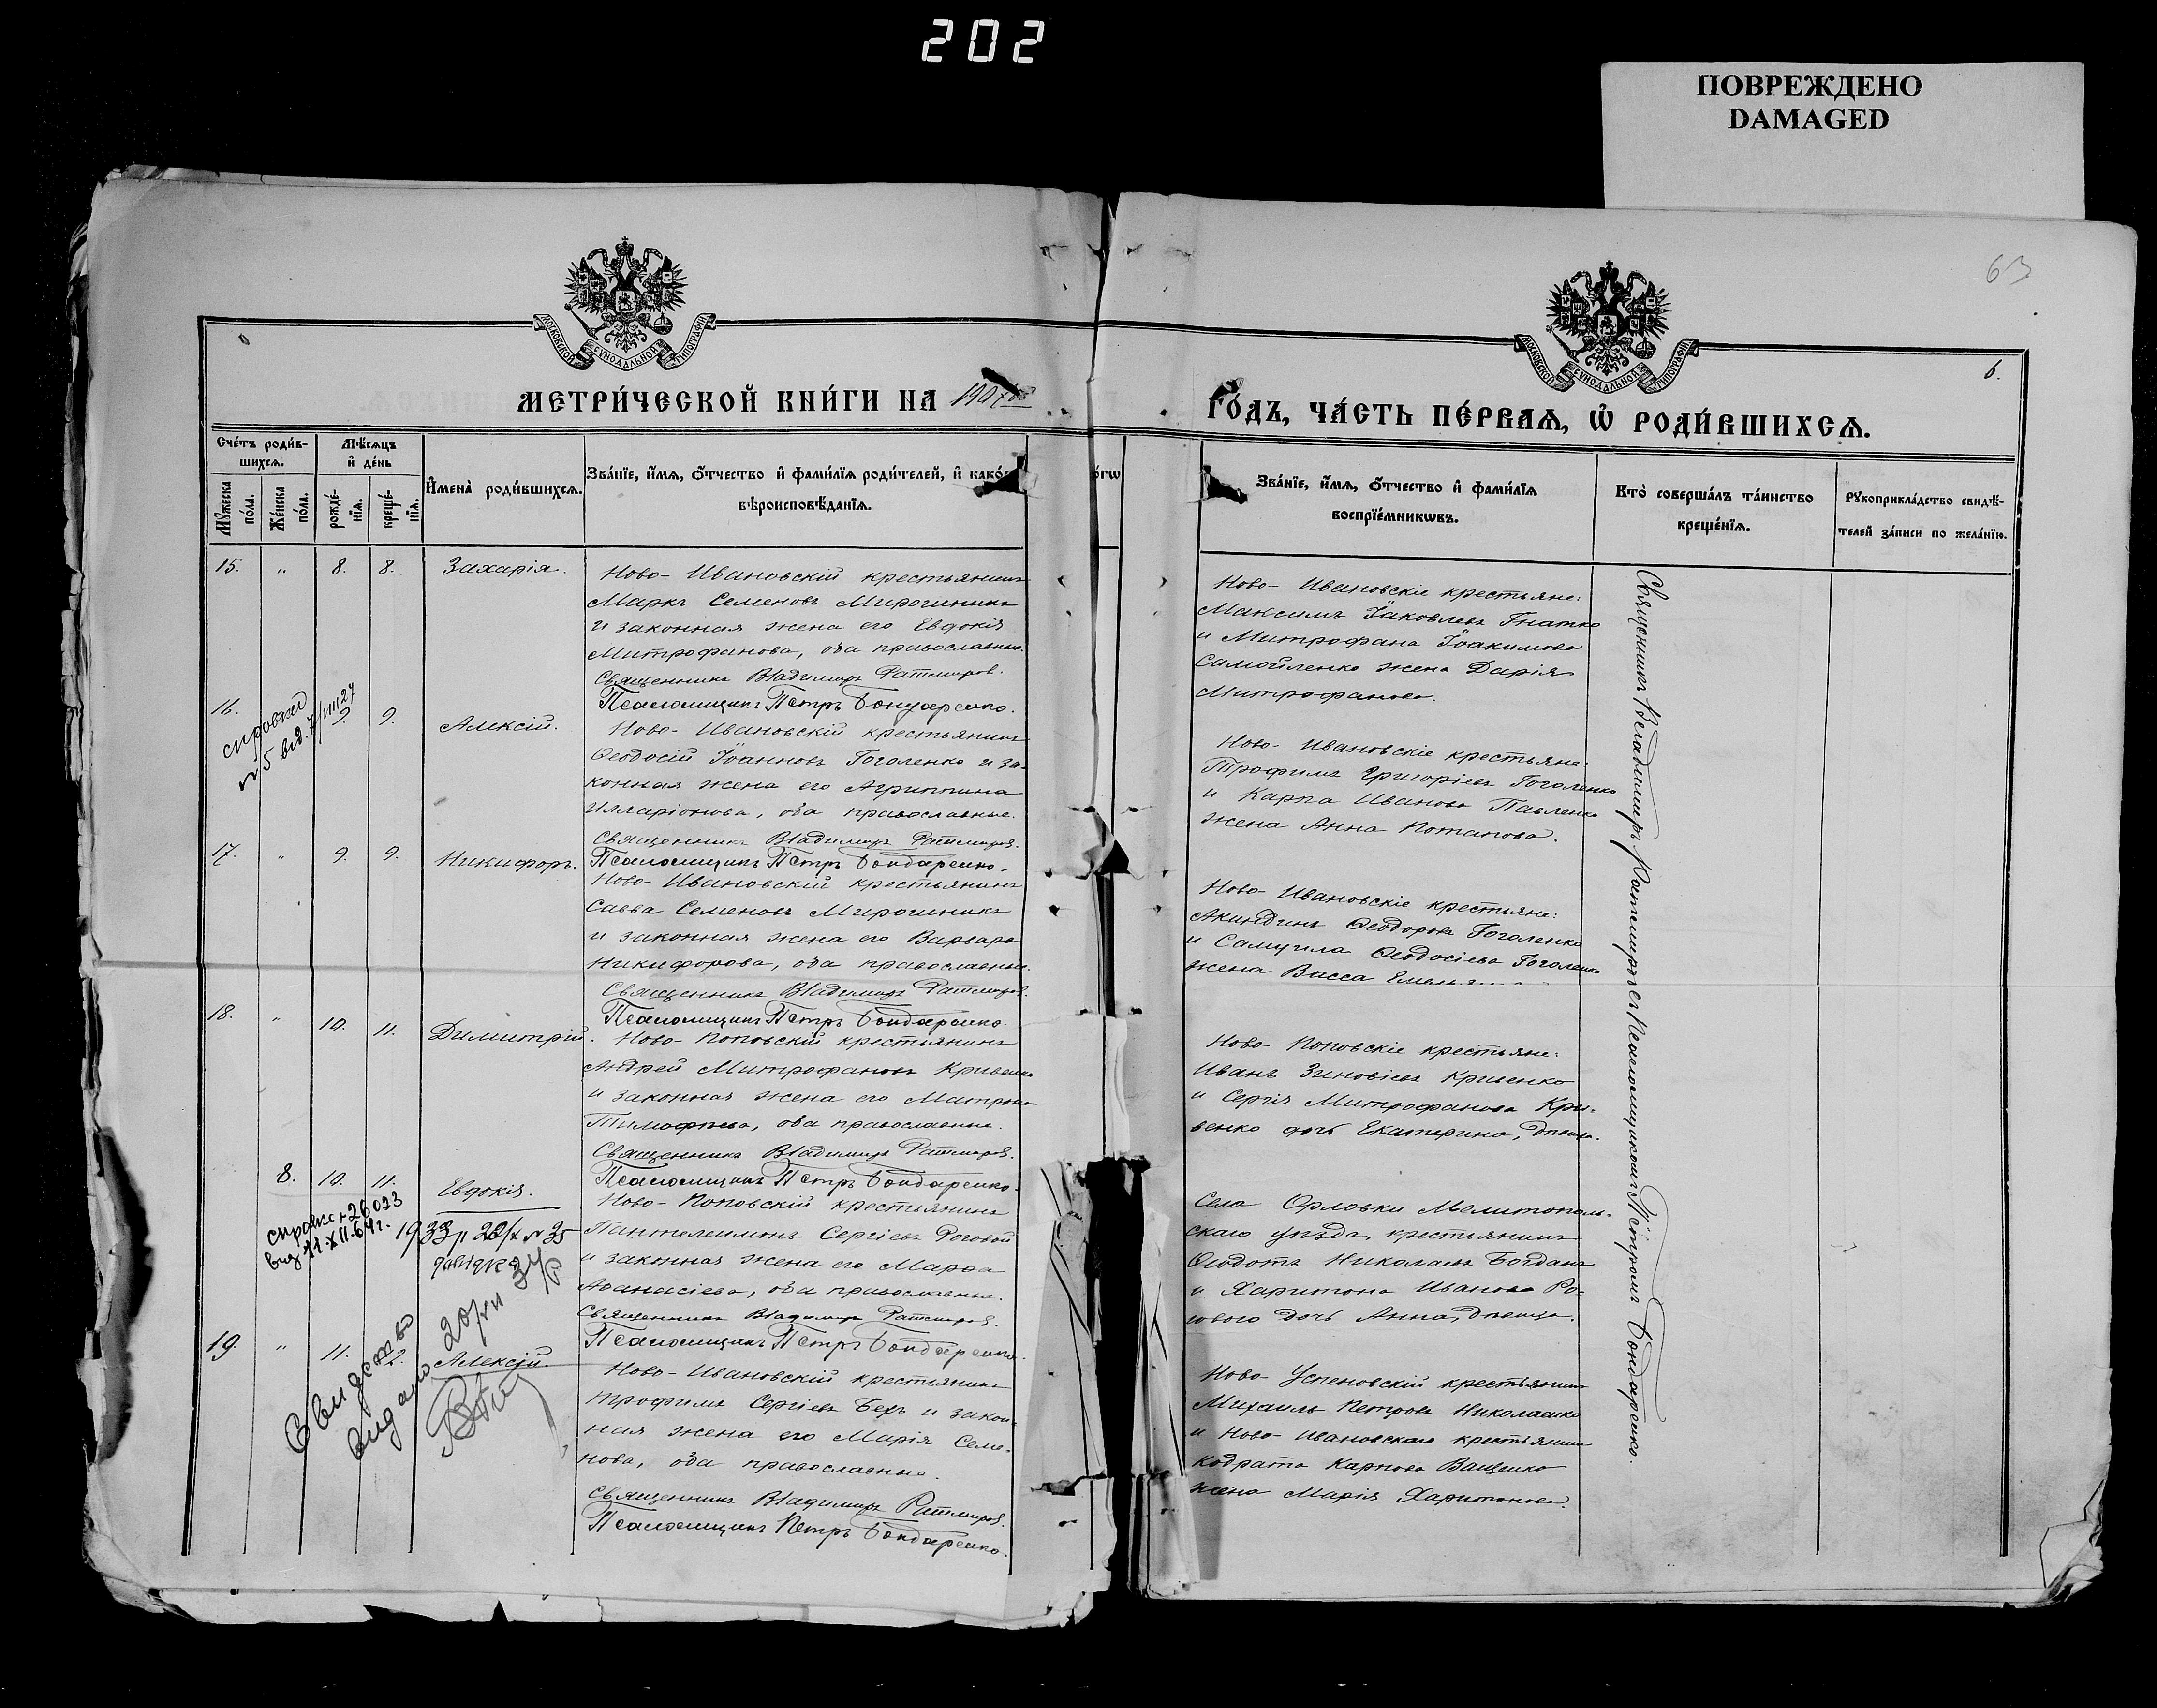 202
ПОВРЕЖДЕНО
DAMAGED
63
МОСКОВСКОЙ СѴНОДАЛЬНОЙ ТИПОГРАФІИ
МОСКОВСКОЙ СѴНОДАЛЬНОЙ ТИПОГРАФІИ
6.
МЕТРИ́ЧЕСКОЙ КНИ́ГИ НА
ГО́ДЪ, ЧА́СТЬ ПЕ́РВАЯ, Ѡ҆ РОДИ́ВШИХСЯ.
Сче́тъ роди́в-
шихся.
Мѣ́сяцъ
и҆ де́нь
Му́жеска по́ла.
Же́нска по́ла.
рожде́-
нїя.
креще́-
нїя.
И҆мена̀ роди́вшихся.
Зва́нїе, и҆́мя, ѻ҆́тчество и҆ фами́лїя роди́телей, и҆ како́
о́гѡ
вѣроисповѣ́данїя.
Зва́нїе, и҆́мя, ѻ҆́тчество и҆ фами́лїя
воспрїе́мникѡвъ.
Кто̀ соверша́лъ та́инство
креще́нїя.
Рꙋкоприкла́дство свидѣ́-
телей за́писи по жела́нїю.
15. " 8. 8. Захарія.
Ново-Ивановскій крестьянинъ
Маркъ Семеновъ Мирочникъ
и законная жена его Евдокія
Митрофанова, оба православные.
Священникъ Владимиръ Ратмиров.
Псаломщикъ Петръ Бондаренко.
Ново-Ивановскіе крестьяне:
Максимъ Іаковлевъ Гнатко
и Митрофана Іоакимова
Самойленко жена Дарія
Митрофанова.
16. 9. 9. Алексій.
справка
№5 выд.
Ново-Ивановскій крестьянинъ
Ѳеодосій Іоанновъ Гоголенко и за-
конная жена его Агриппина
Илларіонова, оба православные.
Священникъ Владимиръ Ратмиров.
Псаломщикъ Петръ Бондаренко.
Ново-Ивановскіе крестьяне:
Трофимъ Григоріевъ Гоголенко
и Карпа Иванова Павленко
жена Анна Потапова.
17. " 9. 9. Никифоръ.
Ново-Ивановскій крестьянинъ
Савва Семеновъ Мирочникъ
и законная жена его Варвара
Никифорова, оба православные.
Священникъ Владимиръ Ратмиров.
Псаломщикъ Петръ Бондаренко.
Ново-Ивановскіе крестьяне:
Акиндинъ Ѳеодоровъ Гоголенко
и Самуила Ѳеодосіева Гоголенко
жена Васса
18. " 10. 11. Димитрій.
Ново-Поповскій крестьянинъ
Андрей Митрофановъ Кривенко
и законная жена его Матрона
Тимофеева, оба православные.
Священникъ Владимиръ Ратмиров.
Псаломщикъ Петръ Бондаренко.
Ново-Поповскіе крестьяне:
Иванъ Зиновіевъ Кривенко
и Сергія Митрофанова Кри-
венко дочь Екатерина, девица.
8. 10. 11. Евдокія.
справка 26023
выд. 11.XII.64г.
Ново-Поповскій крестьянинъ
Пантелеимонъ Сергіевъ Роговой
и законная жена его Марѳа
Аѳанасіева, оба православные.
Священникъ Владимиръ Ратмиров.
Псаломщикъ Петръ Бондаренко.
Села Орловки Мелитополь-
скаго уезда, крестьянинъ
Ѳеодотъ Николаевъ Богданъ
и Харитона Иванова Ро-
гового дочь Анна, девица.
19. " 11. Алексій.
Свидетство
видано
Ново-Ивановскій крестьянинъ
Трофимъ Сергіевъ Бехъ и закон-
ная жена его Марія Семе-
нова, оба православные.
Священникъ Владимиръ Ратмиров.
Псаломщикъ Петръ Бондаренко.
Ново-Успеновскій крестьянинъ
Михаилъ Петровъ Николаенко
и Ново-Ивановскаго крестьянина
Кодрата Карпова Ващенко
жена Марія Харитонова.
Священникъ Владимиръ Ратмировъ съ Псаломщикомъ Петромъ Бондаренко.